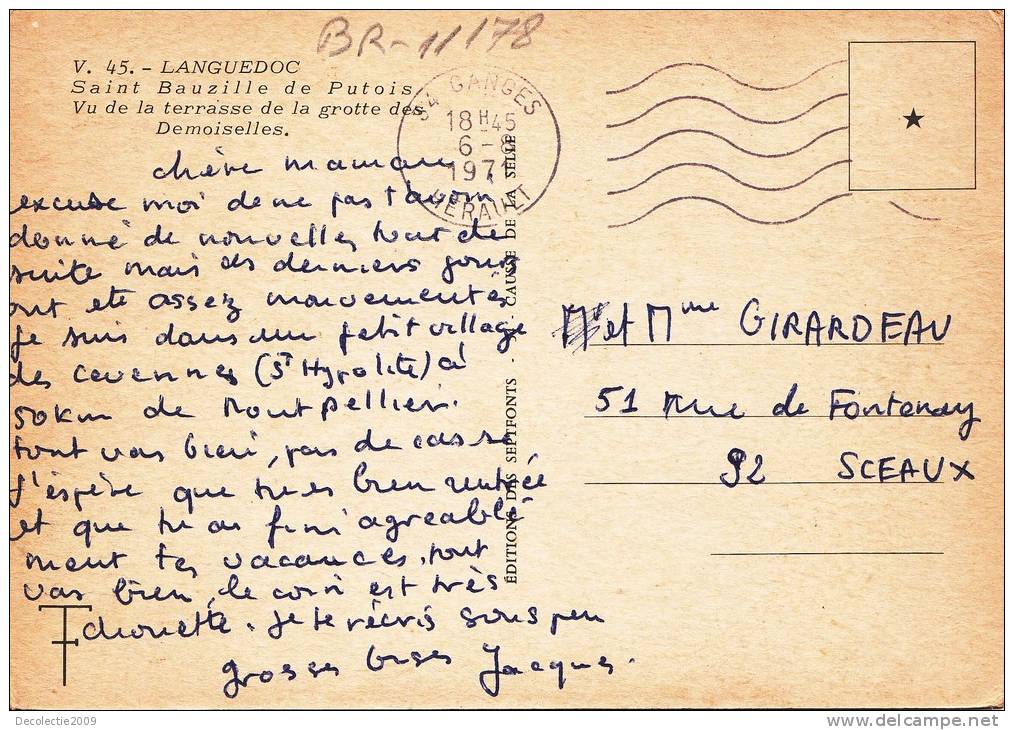 BR-11178
V. 45. - LANGUEDOC
Saint Bauzille de Putois
Vu de la terrasse de la grotte des
Demoiselles.
34 GANGES
18 H 45
6 - 8
1971
HERAULT
chère maman
excuse moi de ne pas t'avoir
donné de nouvelles tout de
suite mais ces derniers jours
ont ete assez mouvementés
je suis dans un petit village
des cevennes (St Hypolite) à
50 km de Montpellier.
tout vas bien, pas de casse
J'espère que tu es bien rentrée
et que tu as fini agreablé
ment tes vacances, tout
vas bien, le coin est très
chouette. je te récris sous peu
grosses bises Jacques.
ÉDITIONS DES SEPTFONTS - CAUSSE DE LA SELLE
Mr et Mme GIRARDEAU
51 rue de Fontenay
92 SCEAUX
Decolectie2009
delcampe.net